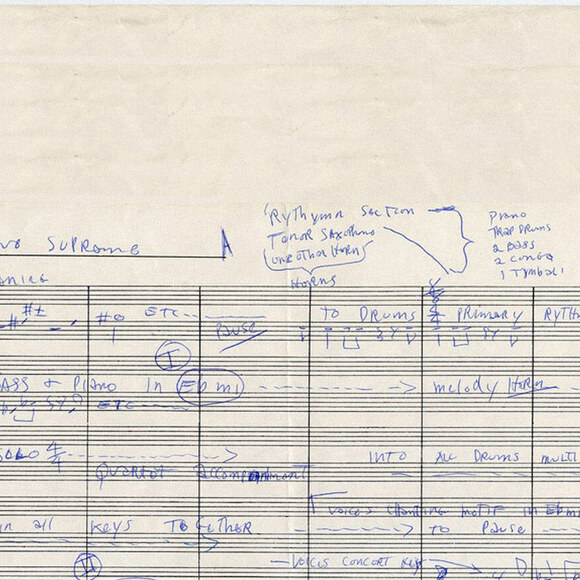 Rythymn Section
Piano
Trap Drums
Tenor Saxophone
2 Bass
one other Horn
2 Conga
1 Tymbali
Horns
Supreme A
ETC
TO DRUMS PRIMARY RYTH
PAUSE
I
ASS & PIANO in Ebmi melody HORN
ETC
SOLO 4/4 INTO ALL DRUMS MULTI
Quartet accompaniment
VOICES CHANTING MOTIF IN Ebm
in all Keys TOGETHER to Pause
VOICES CONCERT KEY
II